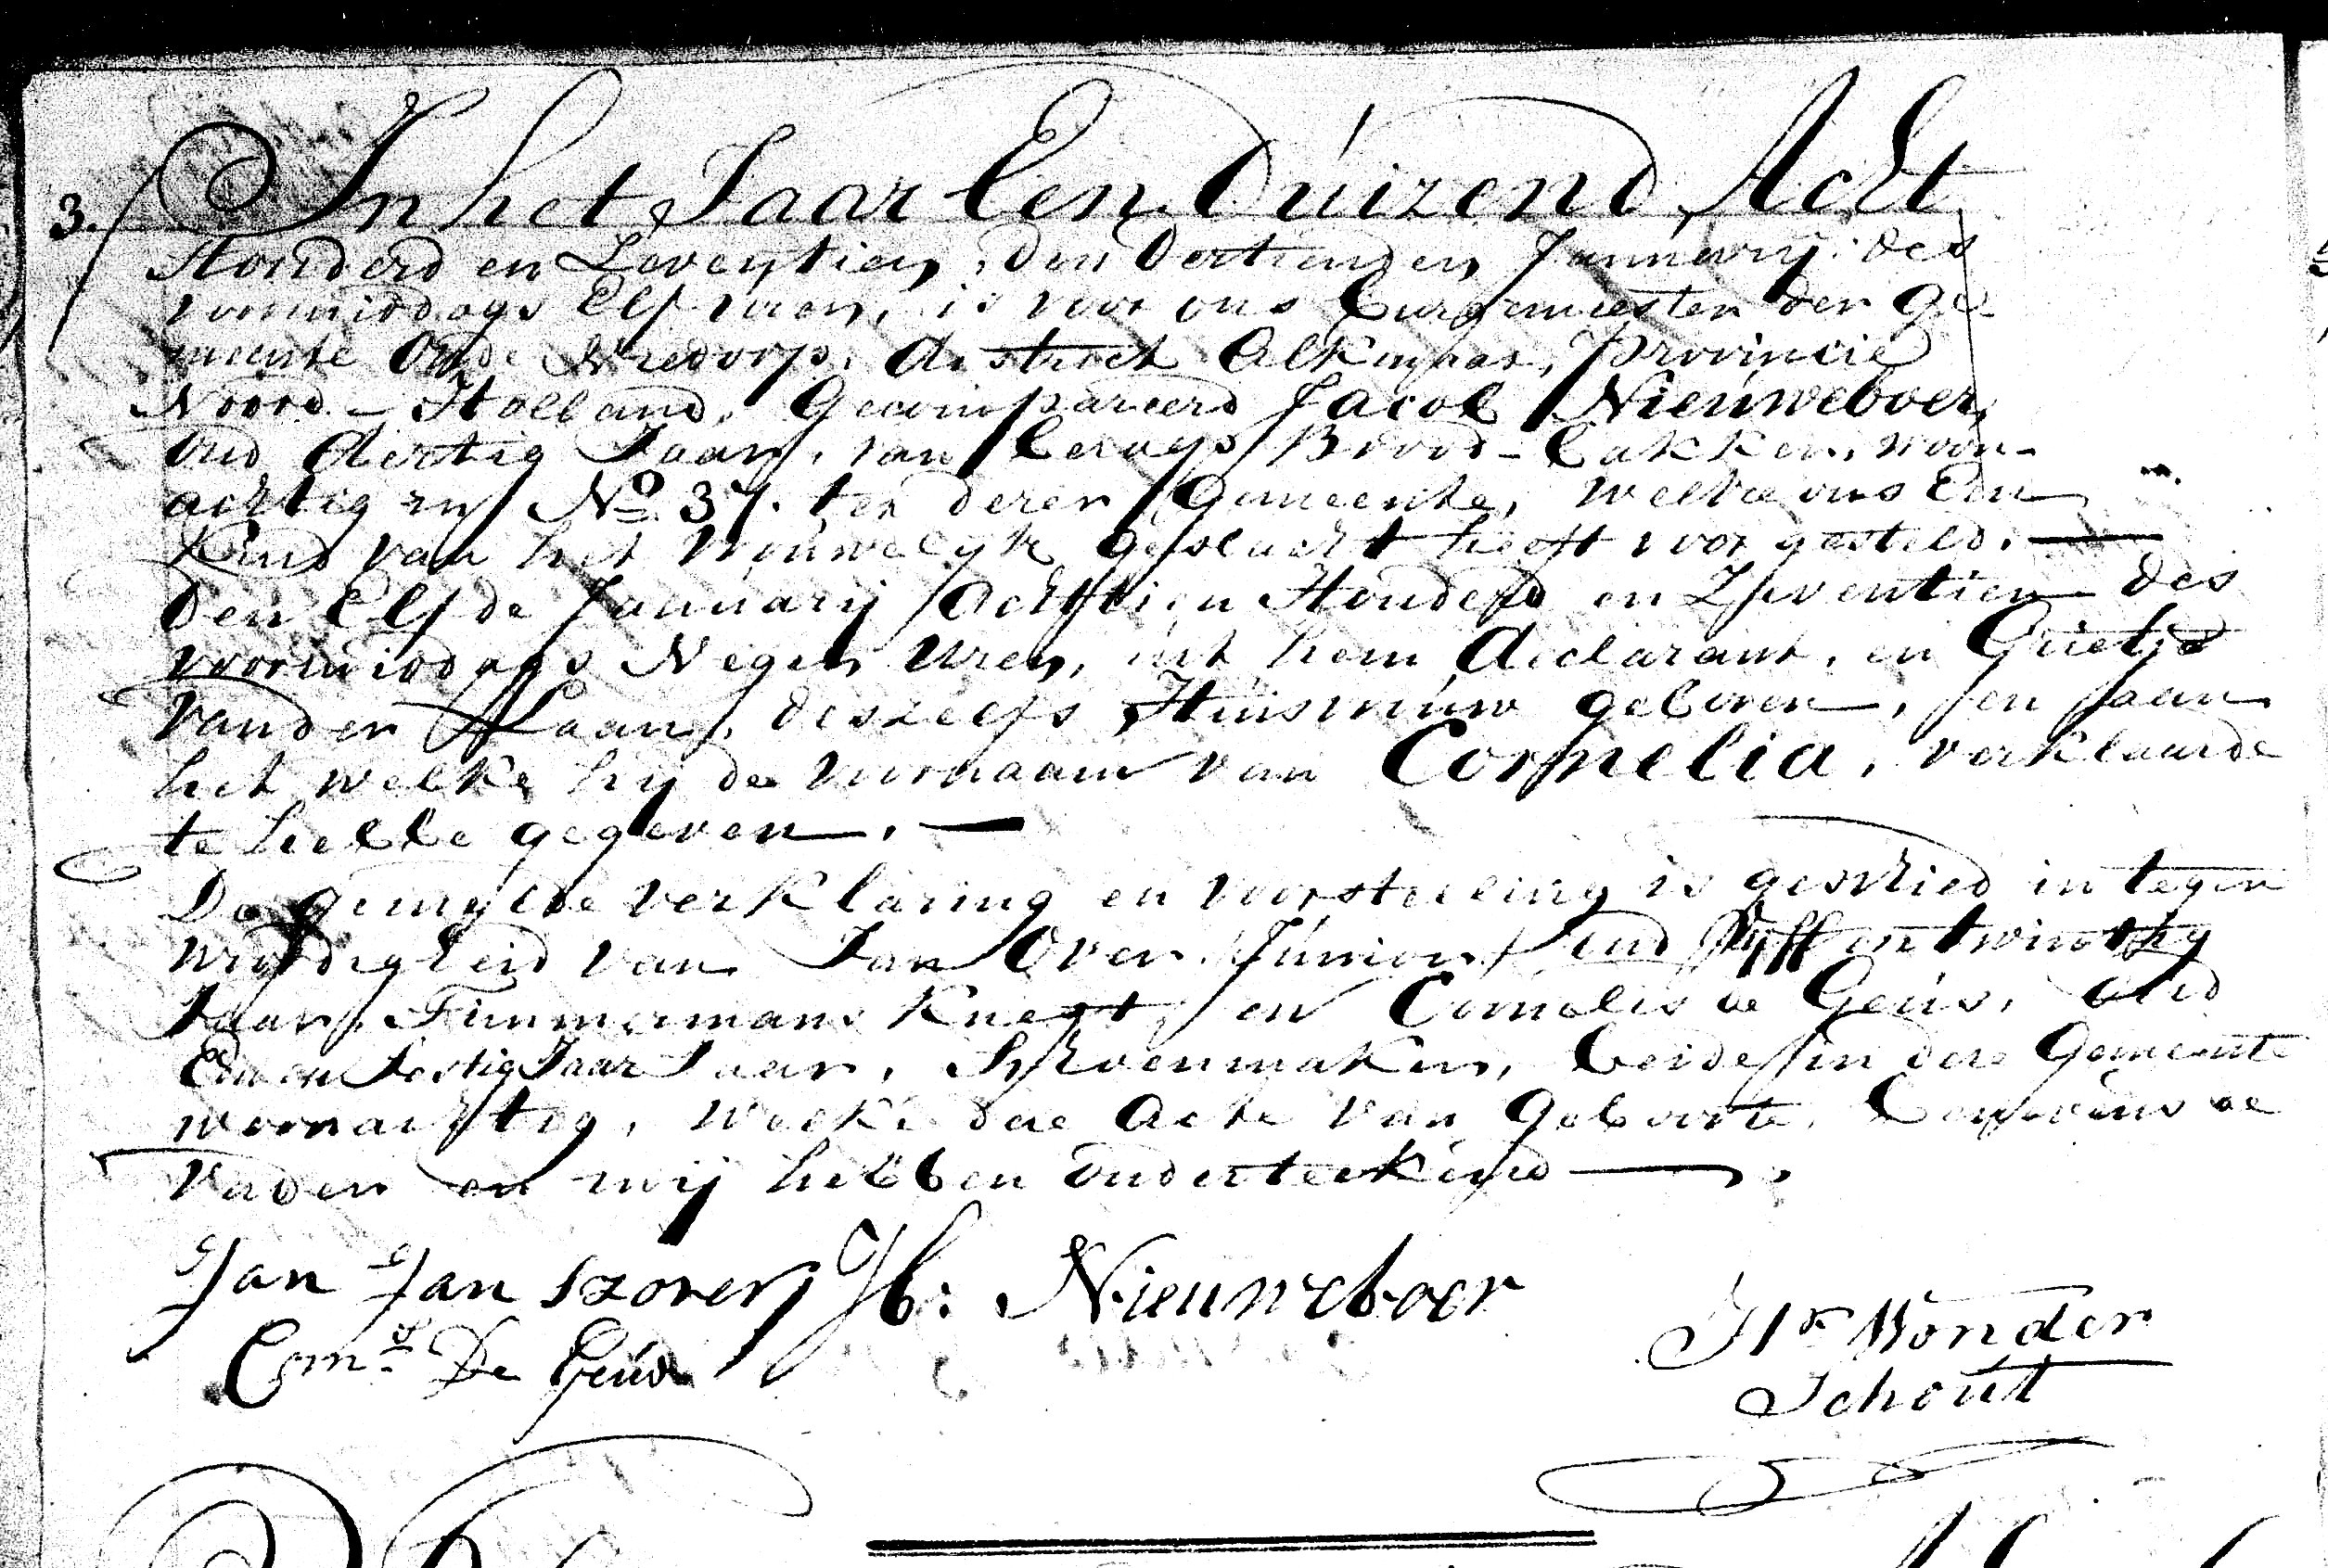 3. In het Jaar Een Duizend Acht
Honderd en Zeventien, den dertienden January des
voormiddags Elf uren, is voor ons Burgemeester der Ge
meente Oude Niedorp, district Alkmaar, Provincie
Noord-Holland, Gecompareerd Jacob Nieuweboer,
oud dertig Jaar, van beroep Brood-bakker, woon-
achtig in No 37. ter dezer Gemeente, welke ons Een
Kind van het Vrouwelyk geslacht heeft voorgesteld.
Den Elfde January Achttien Honderd en Zeventien des
voormiddags Negen Uren, uit hem declarant, en Grietje
van der Haan, deszelfs Huisvrouw geboren, en aan
het welke hy de voornaam van Cornelia, verklaarde
te hebbe gegeven.
De gemelde verklaring en voorstelling is geschied in tegen
woordigheid van Jan Over Junior, oud Vyff en twintig
Jaar, Timmermans Knegt, en Cornelis de Geus, oud
Een en Sestig Jaar Jaar, Schoenmaker, beide in deze Gemeente
woonachtig, welke deze acte van Geboorte, benevens de
Vader en mij hebben onderteekend.
Jan Jansz over Jb: Nieuweboer
Corns De Geus
Hk Wonder
Schout